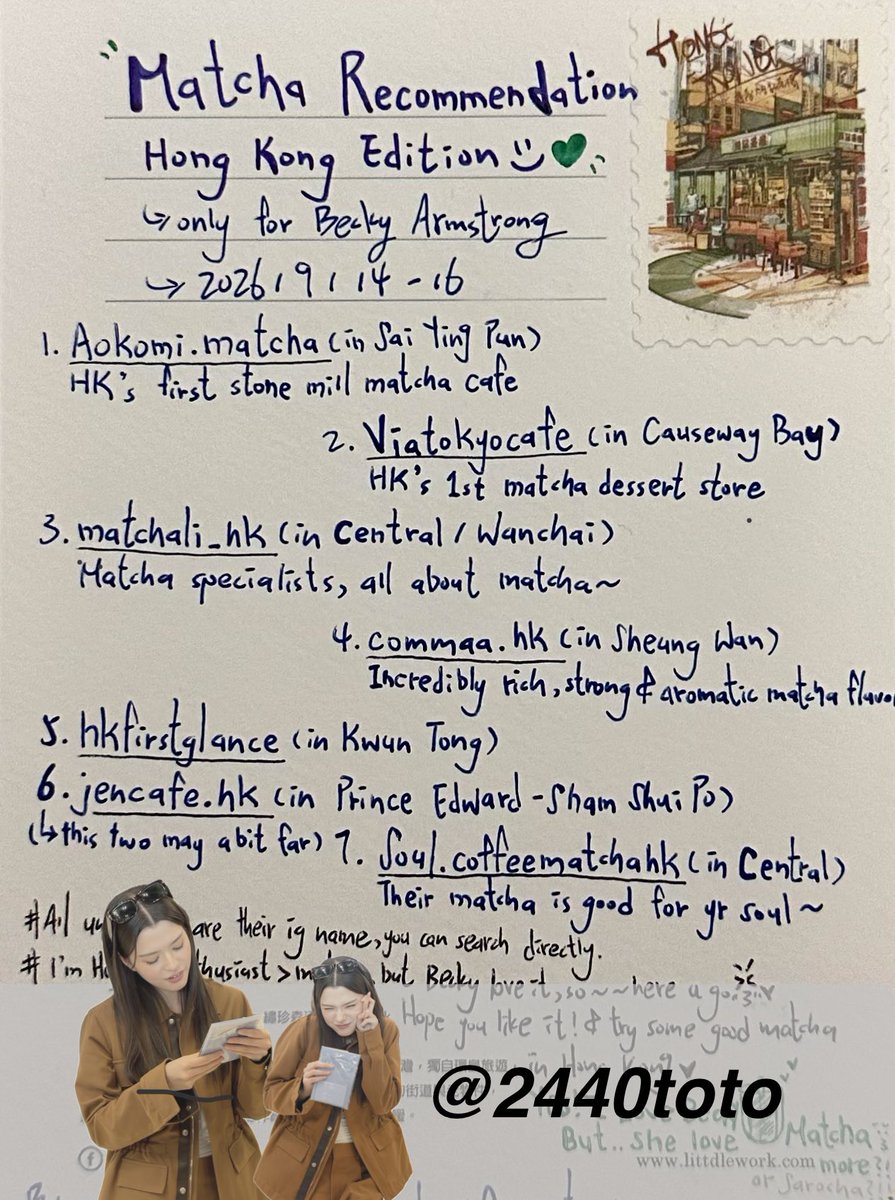 Matcha Recommendation
HONG KONG
Hong Kong Edition
↳ only for Becky Armstrong
↳ 2026 / 9 / 14 - 16
1. Aokomi.matcha (in Sai Ying Pun)
HK's first stone mill matcha cafe
2. Viatokyocafe (in Causeway Bay)
HK's 1st matcha dessert store
3. matchali_hk (in Central / Wanchai)
Matcha specialists, all about matcha~
4. commaa.hk (in Sheung Wan)
Incredibly rich, strong & aromatic matcha flavor
5. hkfirstglance (in Kwun Tong)
6. jencafe.hk (in Prince Edward - Sham Shui Po)
(↳ this two may a bit far)
7. Soul.coffeematchahk (in Central)
Their matcha is good for yr soul~
#All are their ig name, you can search directly.
# I'm but Becky love it, so~~here u go
Hope you like it! & try some good matcha
in Hong Kong
@2440toto
But.. she love Matcha
www.littdlework.com more?!
or Sarocha?!